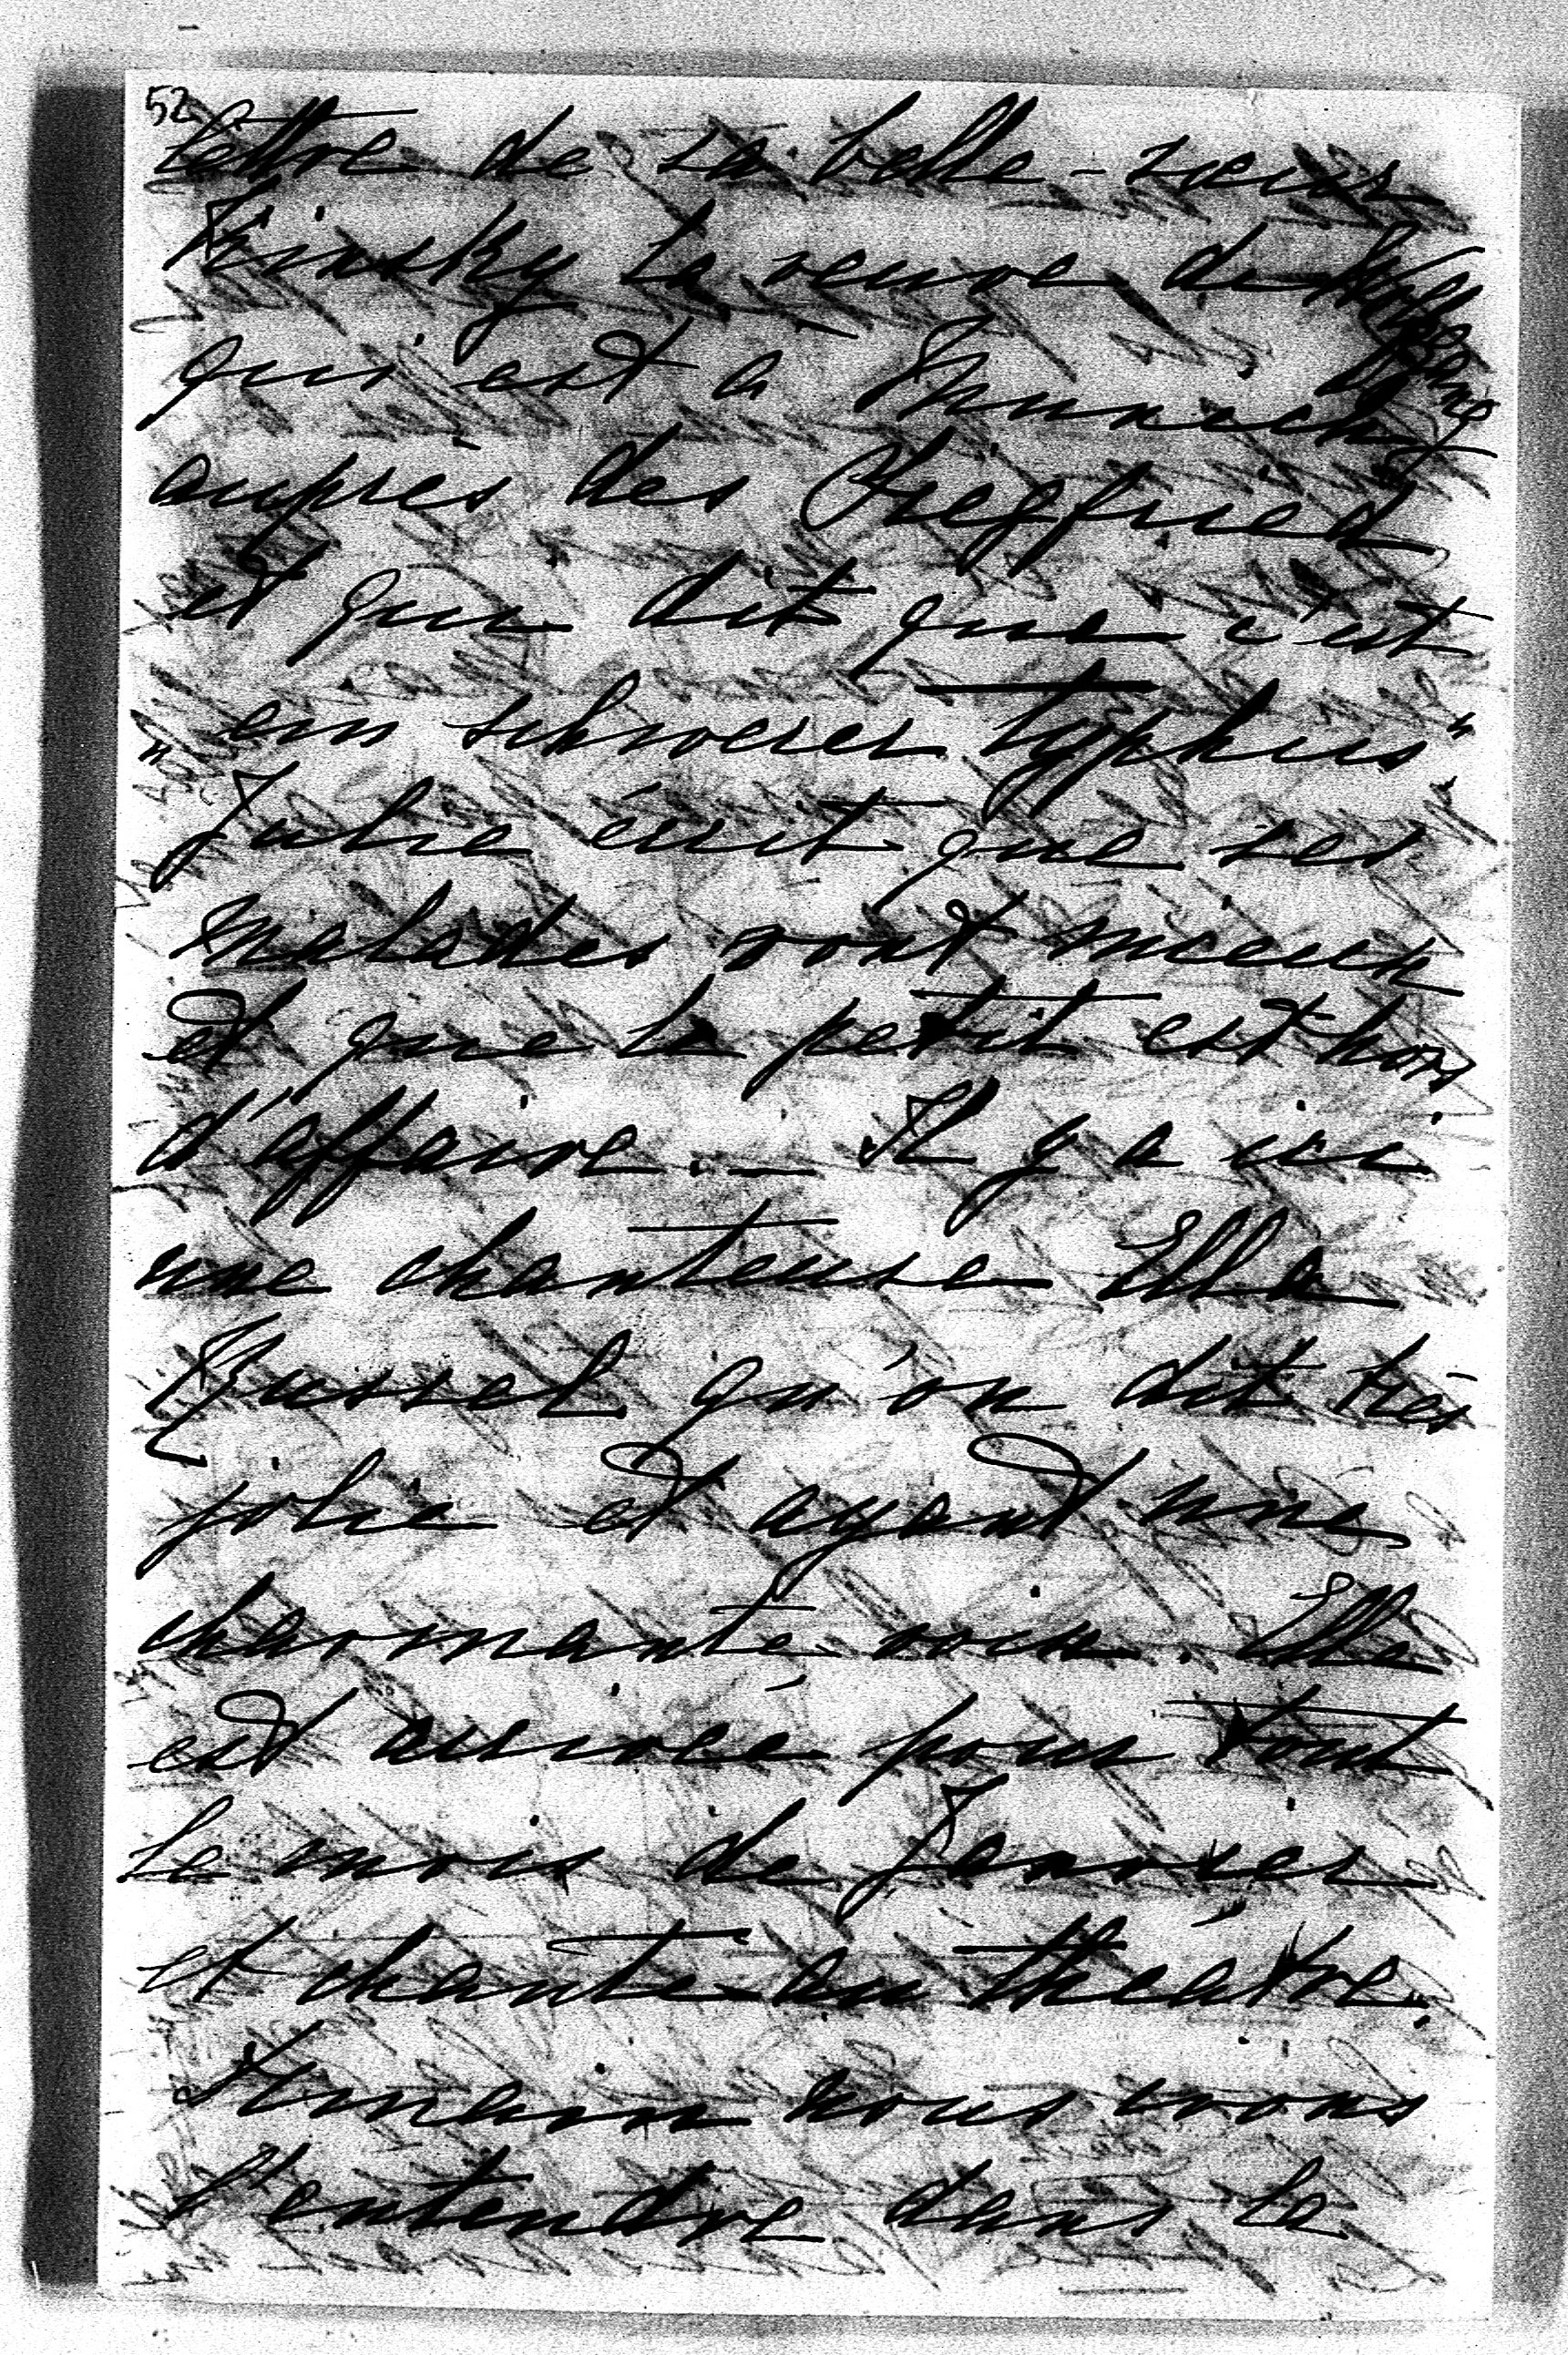 52
lettre de sa belle-sœur
Kinsky la veuve de Wolfgang
qui est a Munich
aupres des Siegfried
et qui dit que c'est
"ein schwerer Typhus"
Julie écrit que ses
malades vont mieux
et que le petit est hors
d'affaire. — Il y a ici
une chanteuse Ella
Russel qu'on dit très
jolie et ayant une
charmante voix. Elle
est arrivée pour tout
le mois de Janvier
et chante au théâtre.
Demain nous irons
l'entendre dans la